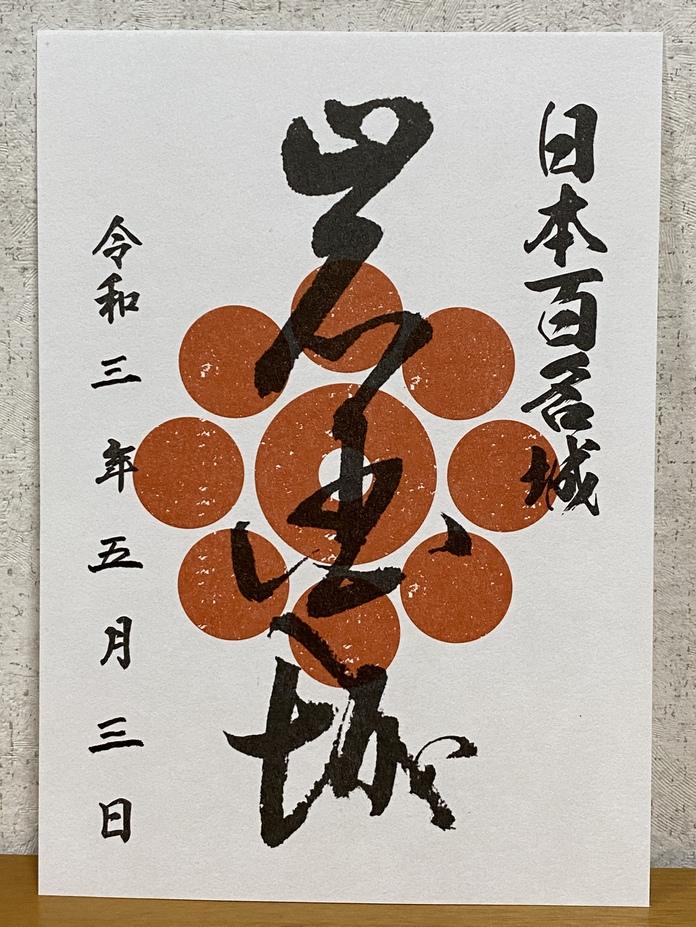 日本百名城
岩国城
令和三年五月三日